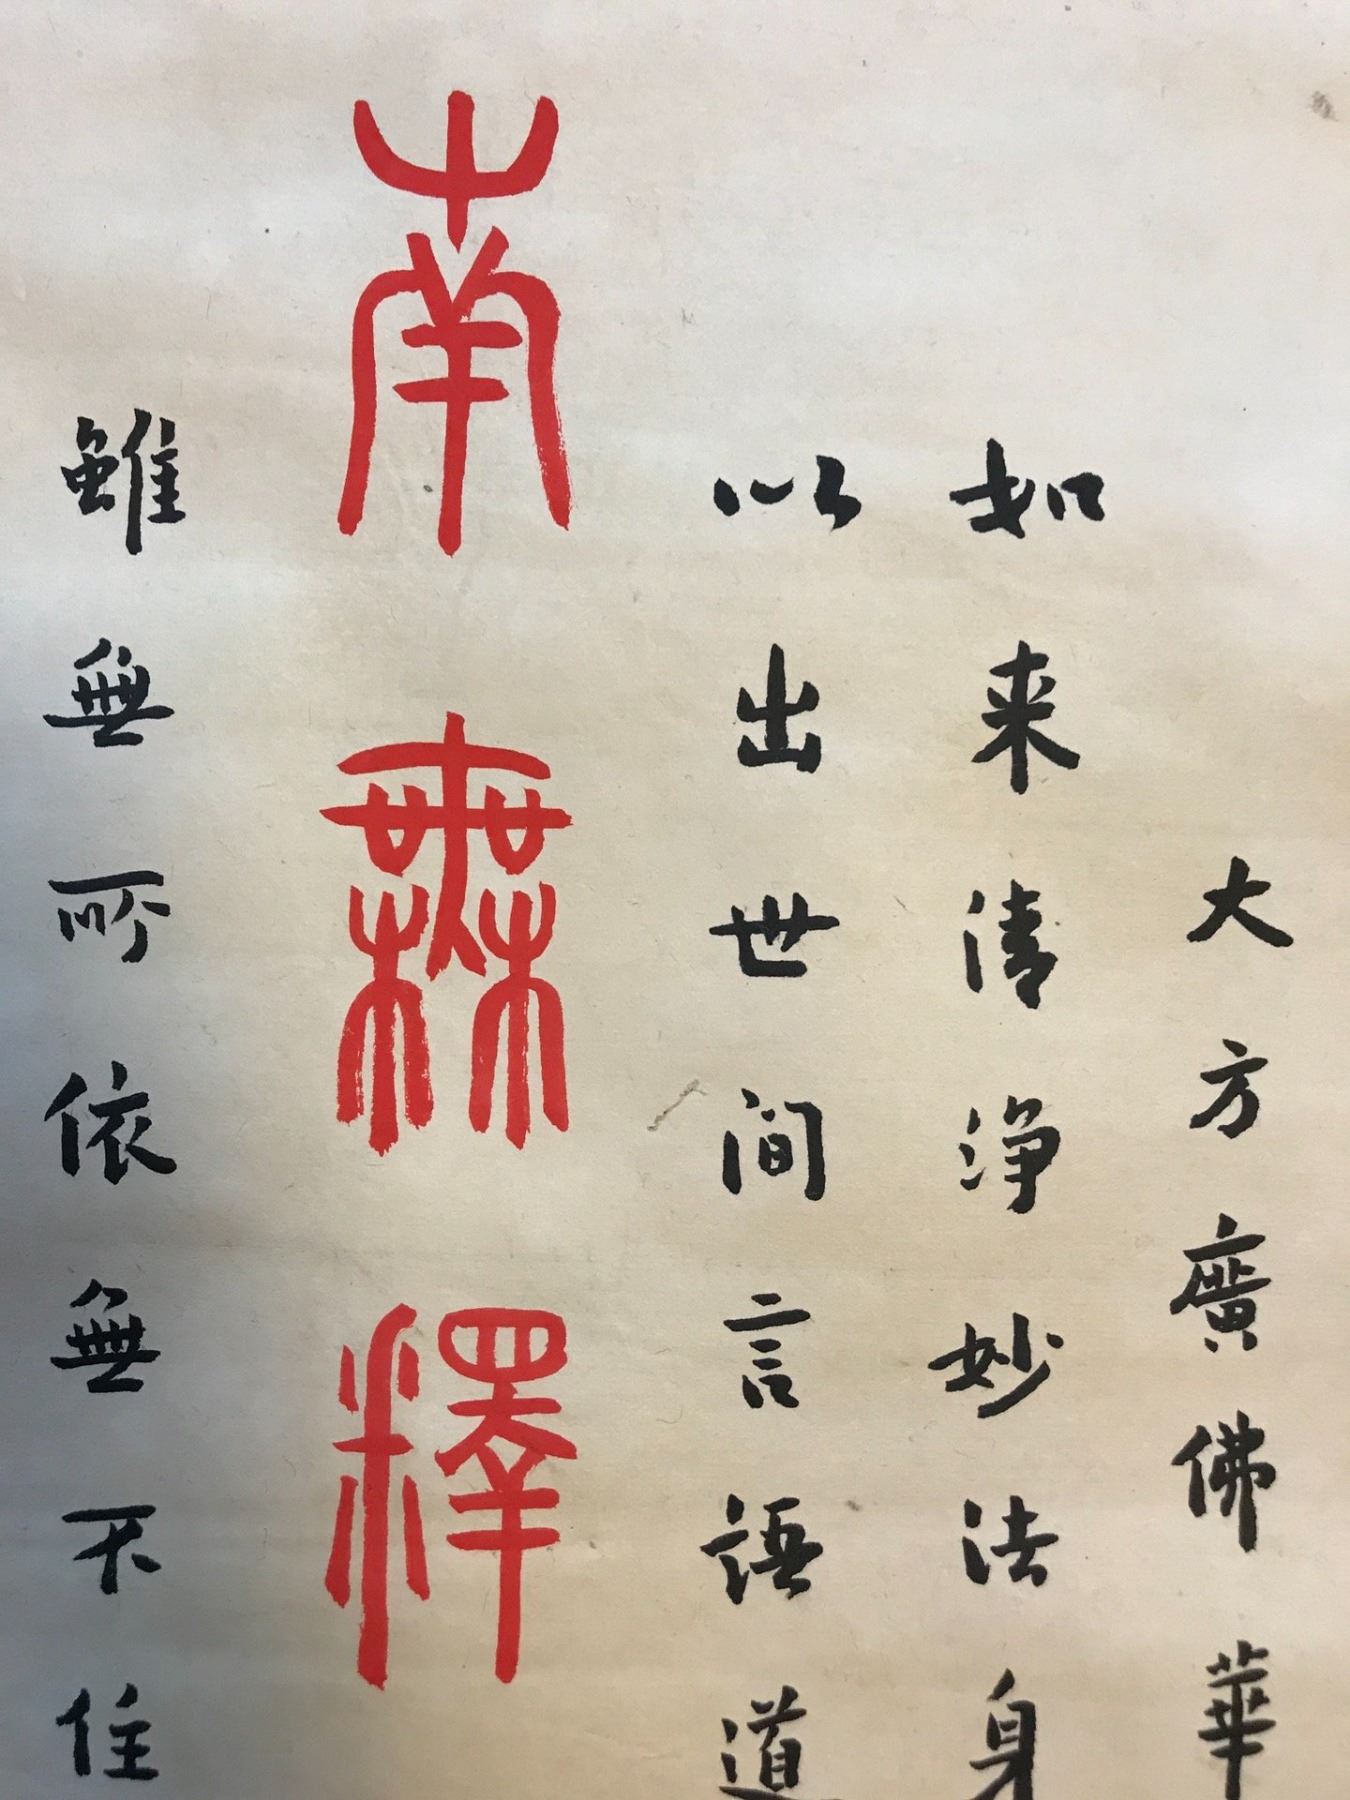 大方廣佛華
如来清淨妙法身
以出世间言語道
南無釋
雖無所依無不住